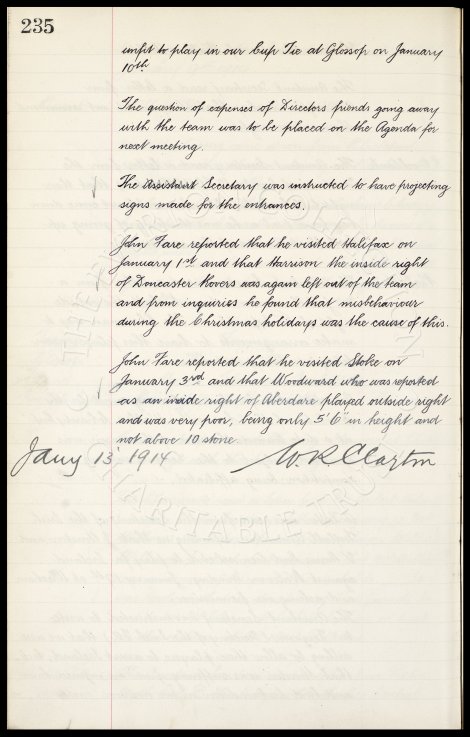 235
unfit to play in our Cup Tie at Glossop on January
10th
The question of expenses of Directors friends going away
with the team was to be placed on the Agenda for
next meeting.
The Assistant Secretary was instructed to have projecting
signs made for the entrances.
John Fare reported that he visited Halifax on
January 1st and that Harrison the inside right
of Doncaster Rovers was again left out of the team
and from inquiries he found that misbehaviour
during the Christmas holidays was the cause of this.
John Fare reported that he visited Stoke on
January 3rd and that Woodward who was reported
as an inside right of Aberdare played outside right
and was very poor, being only 5' 6" in height and
not above 10 stone
Jany 13 1914 W. R. Clayton
CHARITABLE TRU